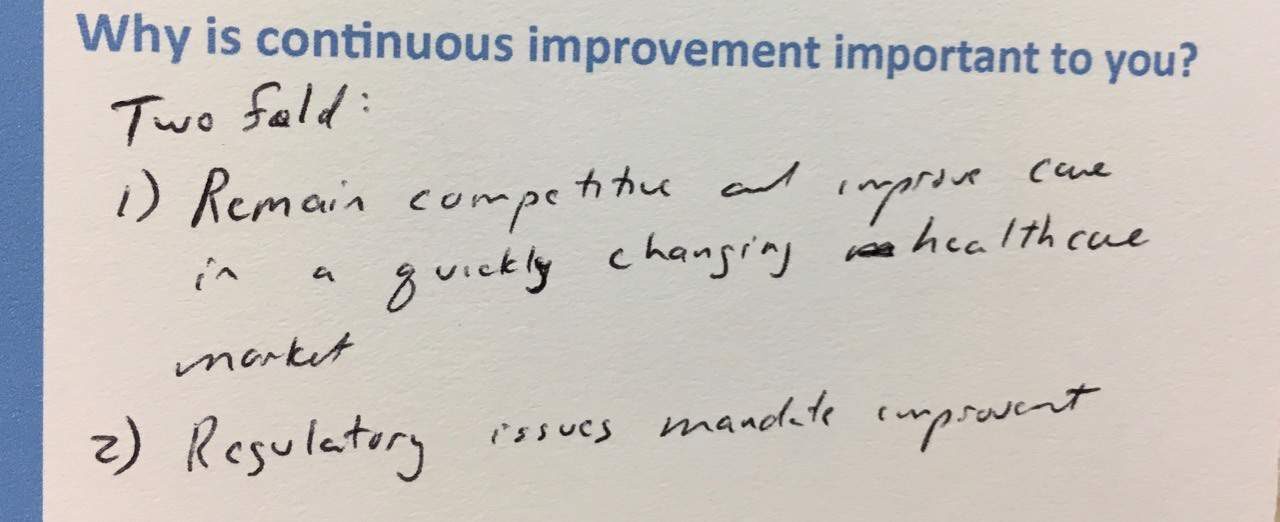 Why is continuous improvement important to you?
Two fold:
1) Remain competitive and improve care
in a quickly changing healthcare
market
2) Regulatory issues mandate improvent